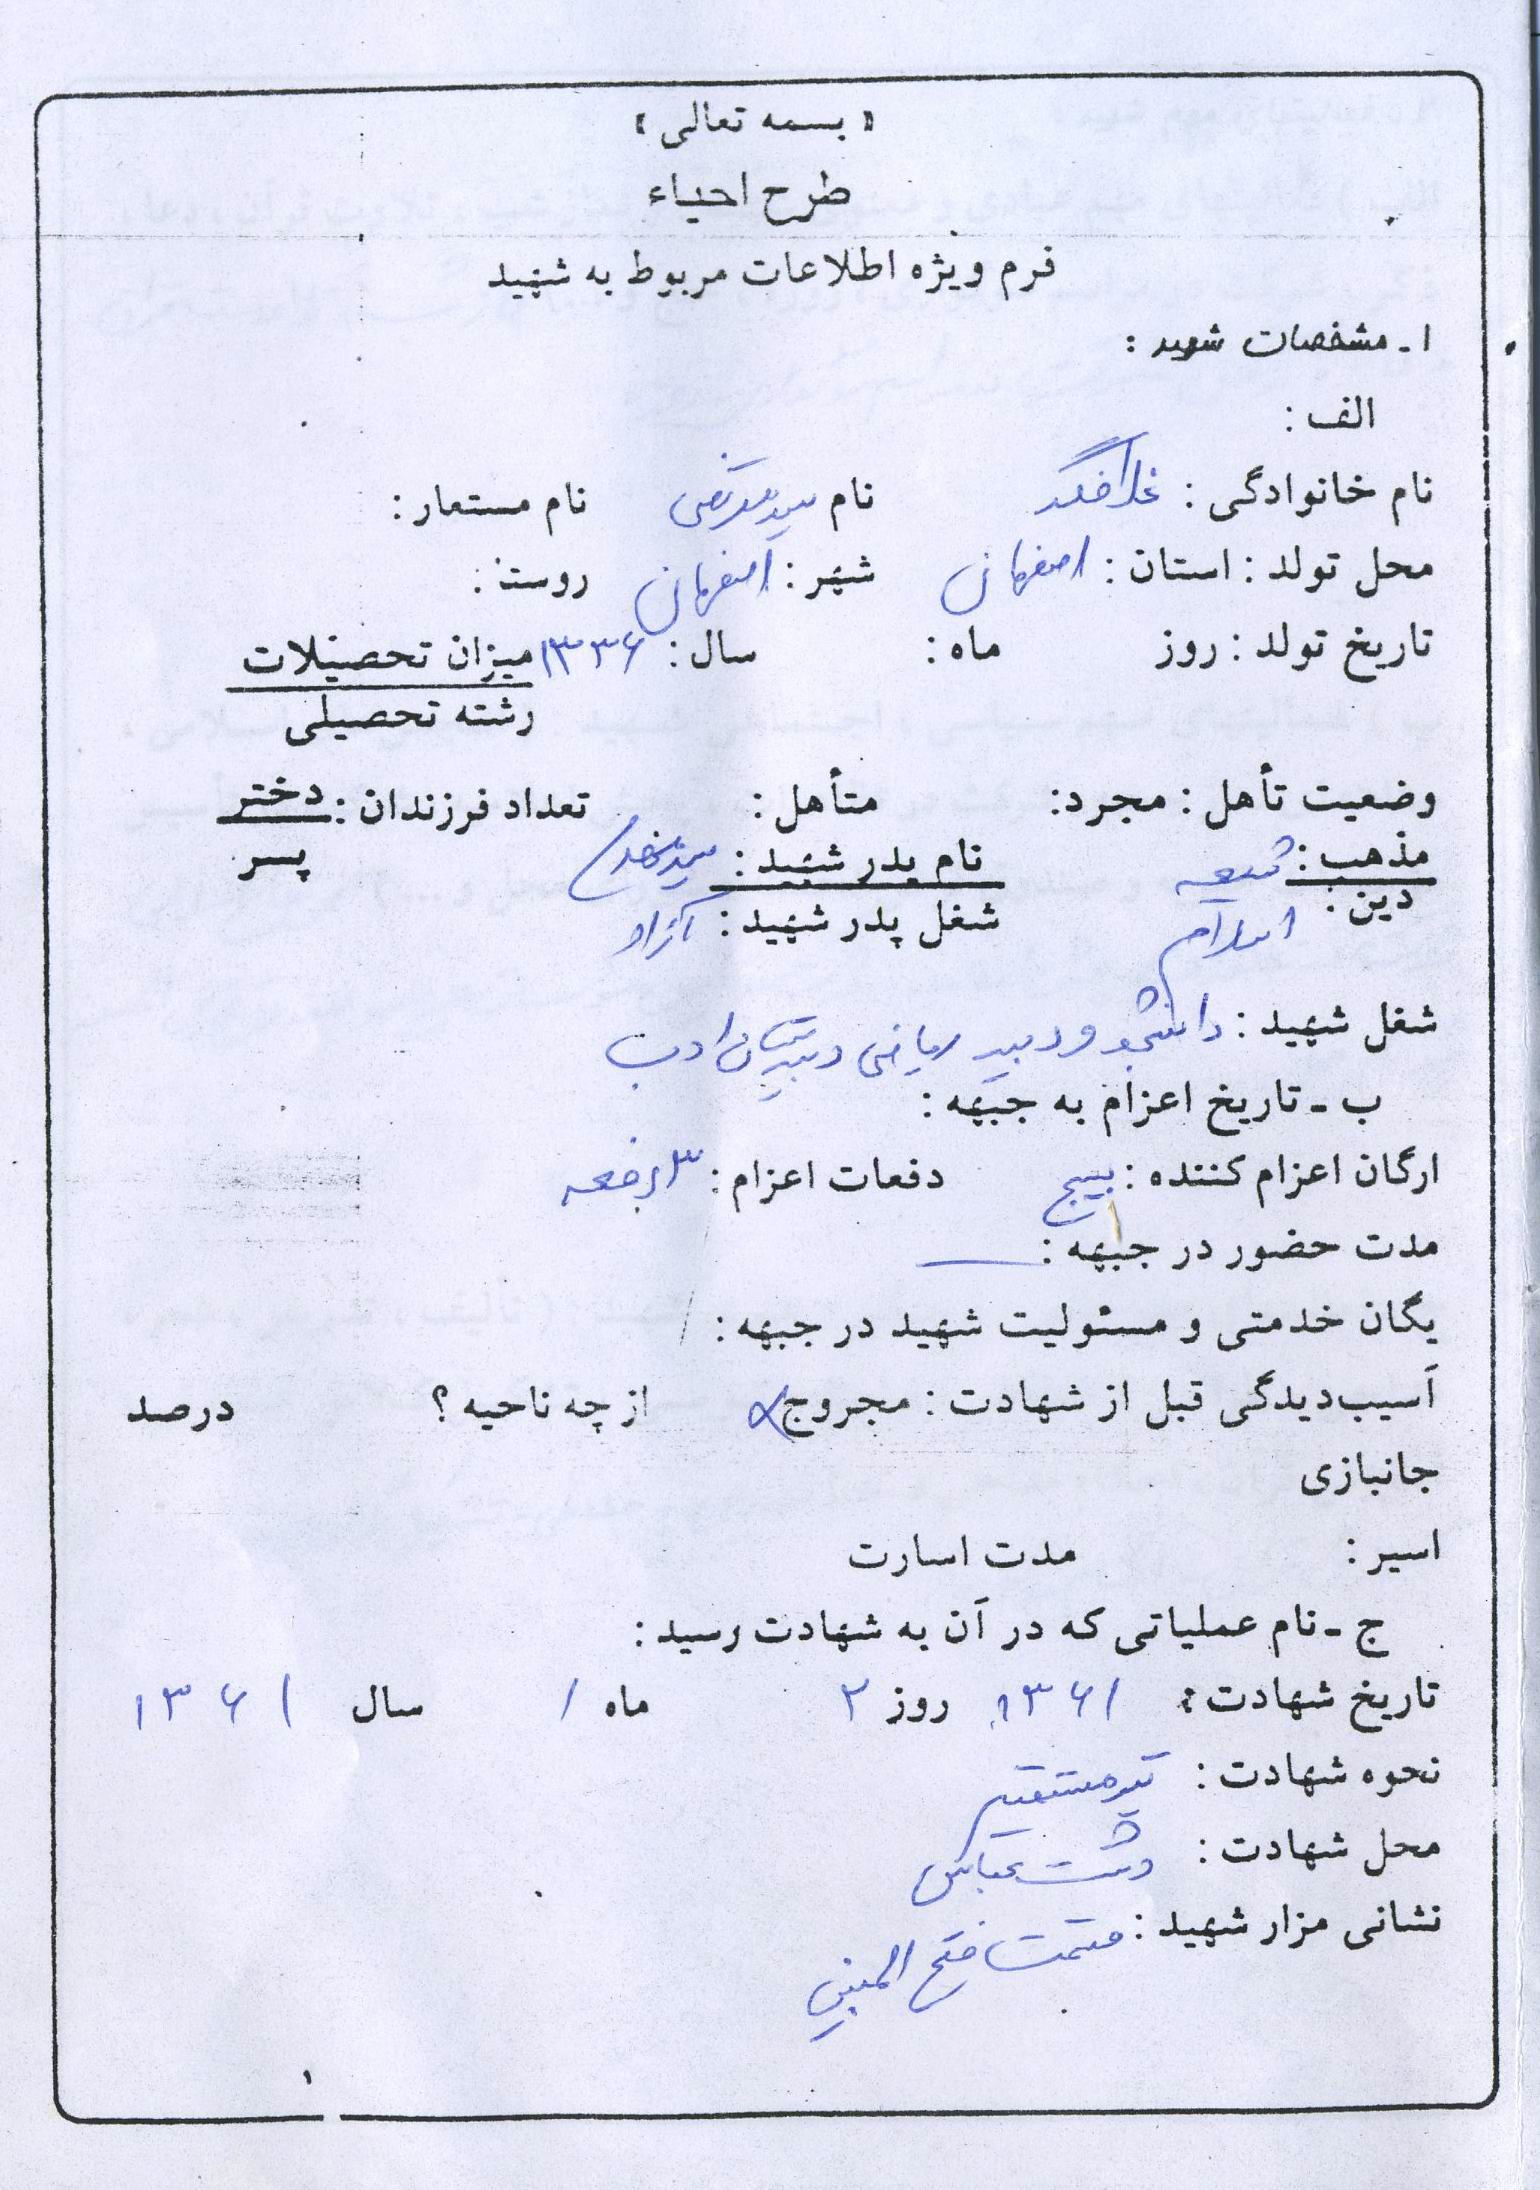 « بسمه تعالی »
طرح احیاء
فرم ویژه اطلاعات مربوط به شهید
۱ـ مشخصات شهید :
الف :
نام خانوادگی : نام سید مرتضی نام مستعار :
محل تولد : استان : اصفهان شهر : اصفهان روستا :
تاریخ تولد : روز ماه : سال : ۱۳۳۶ میزان تحصیلات
رشته تحصیلی
وضعیت تأهل : مجرد : متأهل : تعداد فرزندان : دختر
پسر
مذهب : شیعه نام پدر شهید : سید
دین : اسلام شغل پدر شهید : آزاد
شغل شهید : دانشجو و دبیر ریاضی دبیرستان ادب
ب ـ تاریخ اعزام به جبهه :
ارگان اعزام کننده : بسیج دفعات اعزام : ۳ دفعه
مدت حضور در جبهه :
یگان خدمتی و مسئولیت شهید در جبهه :
آسیب‌دیدگی قبل از شهادت : مجروح از چه ناحیه ؟ درصد
جانبازی
اسیر : مدت اسارت
ج ـ نام عملیاتی که در آن به شهادت رسید :
تاریخ شهادت : ۱۳۶۱ روز ۲ ماه ۱ سال ۱۳۶۱
نحوه شهادت : تیر مستقیم
محل شهادت : دشت عباس
نشانی مزار شهید : فتح المبین
۱